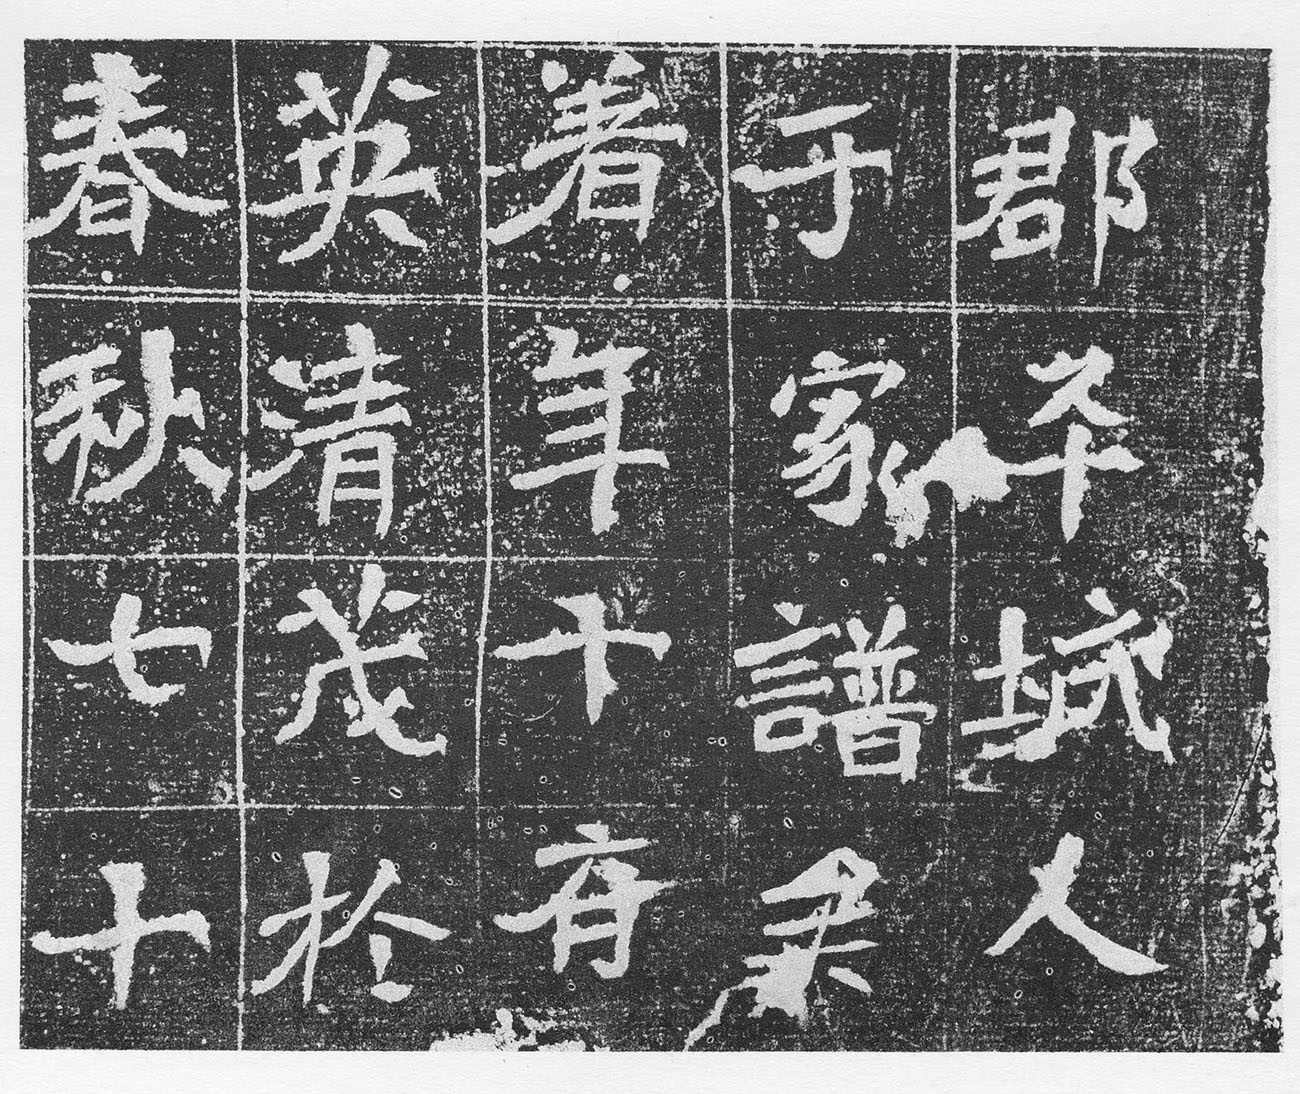 郡城人
于家譜
着年十有
英清茂於
春秋七十